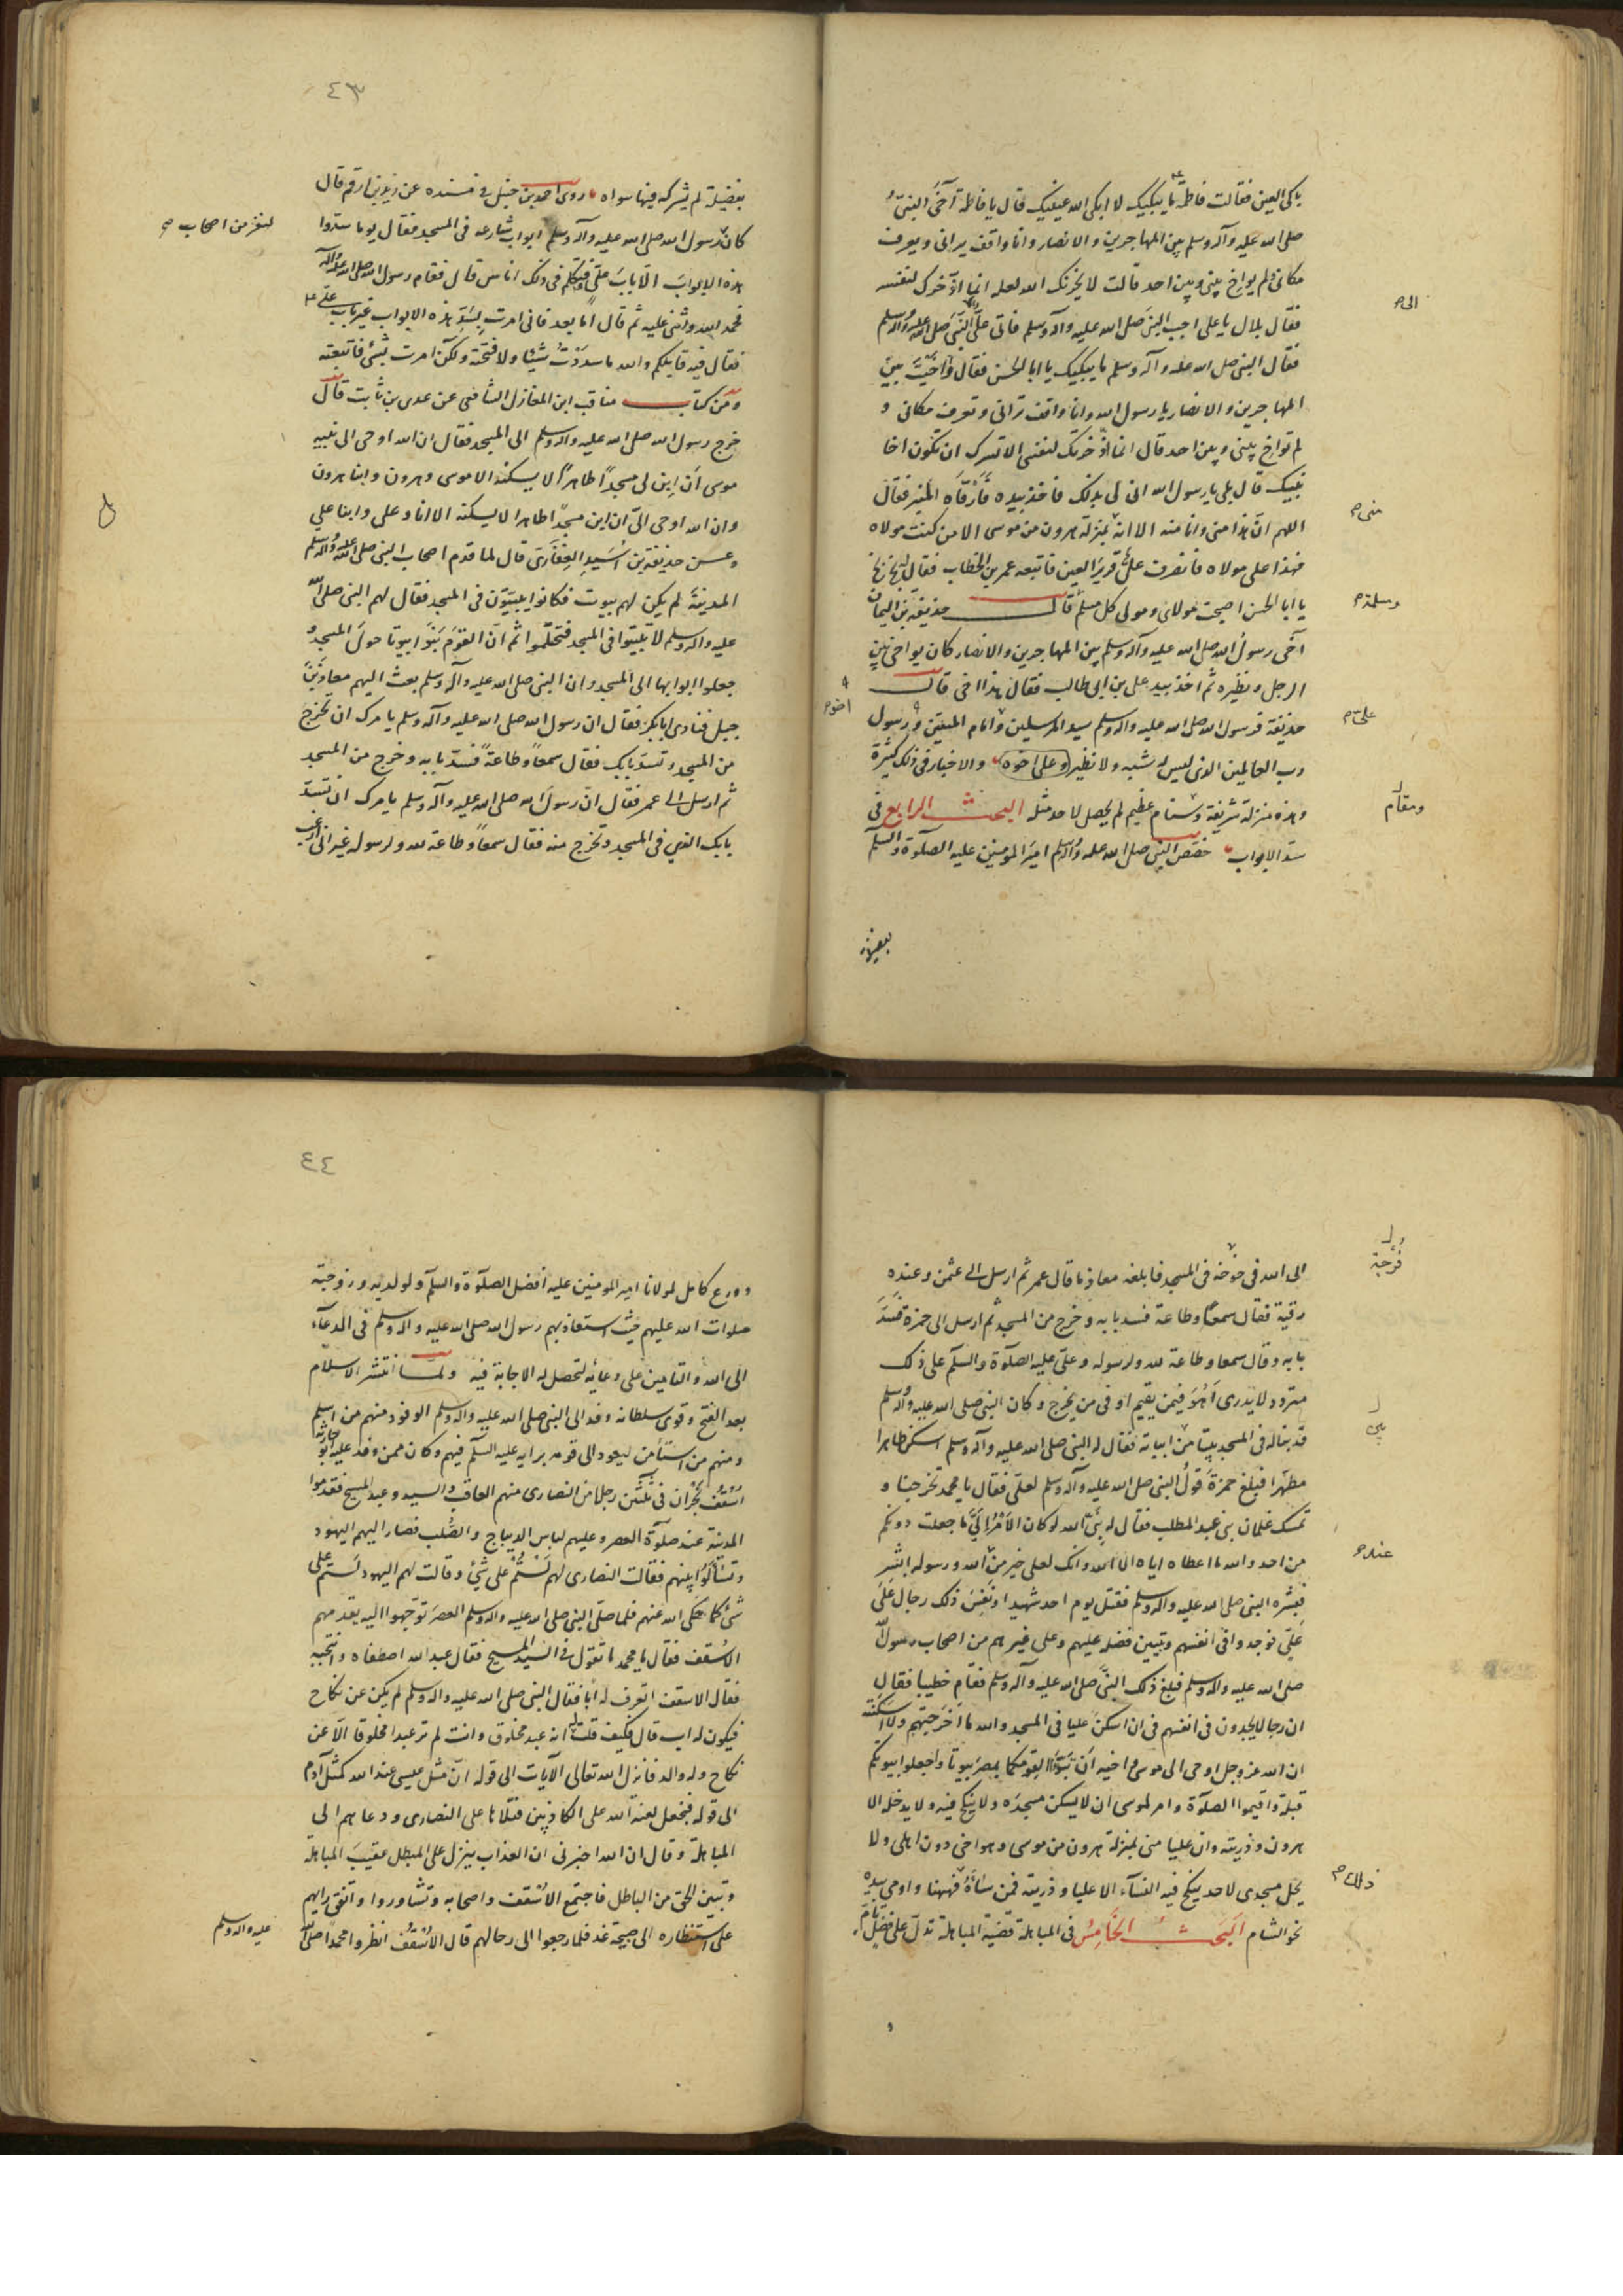 باكى العين فقالت فاطمة ما يبكيك لا ابكى الله عينيك قال يا فاطمة آخى النبىّ
صلى الله عليه وآله وسلم بين المهاجرين والانصار وانا واقف يرانى ويعرف
مكانى ولم يواخ بينى وبين احد قالت لا يحزنك الله لعله انما ادّخرك لنفسه
الى
فقال بلال يا على اجب النبى صلى الله عليه وآله وسلم فاتى علىّ النبىّ صلى الله عليه وآله وسلم
فقال النبى صلى الله عليه وآله وسلم ما يبكيك يا ابا الحسن فقال وآخيت بين
المهاجرين والانصار يا رسول الله وانا واقف ترانى وتعرف مكانى و
لم تواخ بينى وبين احد قال انما ادّخرتك لنفسى الا تسرك ان تكون اخا
نبيك قال بلى يا رسول الله انى لى بذلك فاخذ بيده فَارْقَاه المنبر فقال
منى
اللهم انّ هذا منى وانا منه الا انّه بمنزلة هرون من موسى الا من كنت مولاه
فهذا على مولاه فانصرف علىّ قرير العين فاتبعه عمر بن الخطاب فقال بخ بخ
ومسلمة
يا ابا الحسن اصبحت مولاى ومولى كل مسلم قال حذيفة بن اليمان
آخى رسول الله صلى الله عليه وآله وسلم بين المهاجرين والانصار كان يواخى بين
الرجل ونظيره ثم اخذ بيد على بن ابى طالب فقال هذا اخى قال
على
اخوه
حذيفة فرسول الله صلى الله عليه وآله وسلم سيد المرسلين وامام المتقين ورسول
رب العالمين الذى ليس له شبه ولا نظير وعلى اخوه والاخبار فى ذلك كثيرة
ومقام
وهذه منزلة شريفة وسنام عظيم لم يحصل لاحد مثله البحث الرابع فى
سدّ الابواب خصّص النبى صلى الله عليه وآله وسلم امير المؤمنين عليه الصلوة والسلم
بفضيلة
٤٣
بفضيلة لم يشركه فيها سواه روى احمد بن حنبل فى مسنده عن زيد بن ارقم قال
لنفر من اصحاب
كان لرسول الله صلى الله عليه وآله وسلم ابواب شارعه فى المسجد فقال يوما سدّوا
هذه الابواب الّا باب علىّ فتكلم فى ذلك اناس قال فقام رسول الله صلى الله عليه وآله
فحمد الله واثنى عليه ثم قال اما بعد فانى امرت بسدّ هذه الابواب غير باب علىّ
فقال فيه قايلكم والله ما سدَدْتُ شيئا ولا فتحته ولكن امرت بشئ فاتبعته
ومن كتاب مناقب ابن المغازلى الشافعى عن عدى بن ثابت قال
خرج رسول الله صلى الله عليه وآله وسلم الى المسجد فقال ان الله اوحى الى نبيه
موسى اَن ابن لى مسجداً طاهراً لا يسكنه الا موسى وهرون وابنا هرون
وان الله اوحى الىّ ان ابن مسجداً طاهرا لا يسكنه الا انا وعلى وابنا على
وعن حذيفة بن اُسَيدِ الغِفَارىّ قال لما قدم اصحاب النبى صلى الله عليه وآله وسلم
المدينة لم يكن لهم بيوت فكانوا يبيتون فى المسجد فقال لهم النبى صلى الله
عليه وآله وسلم لا تبيتوا فى المسجد فتحتلموا ثم انّ القوم بَنَوْا بيوتا حول المسجد و
جعلوا ابوابها الى المسجد وان النبى صلى الله عليه وآله وسلم بعث اليهم معاذ بن
جبل فنادى ابابكر فقال ان رسول الله صلى الله عليه وآله وسلم يامرك ان تخرج
من المسجد وتسدّ بابك فقال سمعاً وطاعةً فسدّ بابه وخرج من المسجد
ثم ارسل الى عمر فقال انّ رسول الله صلى الله عليه وآله وسلم يامرك ان تسدّ
بابك الذى فى المسجد وتخرج منه فقال سمعاً وطاعة لله ولرسوله غير انى ارغب
فرجة
الى الله فى خوخة فى المسجد فابلغه معاذ ما قال عمر ثم ارسل الى عثمن وعنده
رقية فقال سمعاً وطاعة فسد بابه وخرج من المسجد ثم ارسل الى حمزة فسدّ
بابه وقال سمعا وطاعة لله ولرسوله وعلىّ عليه الصلوة والسلم على ذلك
متردد لا يدرى اَهُوَ فيمن يقيم او فى من يخرج وكان النبى صلى الله عليه وآله وسلم
قد بنا له فى المسجد بيتا من ابياته فقال له النبى صلى الله عليه وآله وسلم اسكن طاهرا
مطهّرا فبلغ حمزةَ قولُ النبى صلى الله عليه وآله وسلم لعلىّ فقال يا محمد تخرجنا و
تمسك غلمان بنى عبد المطلب فقال له نبىّ الله لو كان الاَمْرُ اِلَىَّ ما جعلت دونكم
عنده
من احد والله ما اعطاه اياه الا الله وانك لعلى خير من الله ورسوله ابشر
فبشّره النبى صلى الله عليه وآله وسلم فقتل يوم احد شهيدا ونَفِسَ ذلك رجال عَلَى
عَلِىّ فوجدوا فى انفسهم وتبين فضله عليهم وعلى غيرهم من اصحاب رسول الله
صلى الله عليه وآله وسلم فبلغ ذلك النبىّ صلى الله عليه وآله وسلم فقام خطيبا فقال
ان رجالا يجدون فى انفسهم فى ان اسكن عليا فى المسجد والله ما اخرجتهم ولا اسكنته
ان الله عز وجل اوحى الى موسى واخيه اَن تَبَوَّءَا لقومكما بمصر بيوتا واجعلوا بيوتكم
قبلة واقيموا الصلوة وامر لموسى ان لا يسكن مسجدَه ولا ينكح فيه ولا يدخله الا
هرون وذريته وان عليا منى بمنزلة هرون من موسى وهو اخى دون اهلى ولا
يحل مسجدى لاحد ينكح فيه النسآء الا عليا وذريته فمن سآءهُ فههنا واومى بيده
نحو الشام البحث الخَامِسُ فى المباهلة قضية المباهلة تدلّ على فضل تامّ
٤٤
وورع كامل لمولانا امير المؤمنين عليه افضل الصلوة والسلم ولولديه وزوجته
صلوات الله عليهم حيث استعاذ بهم رسول الله صلى الله عليه وآله وسلم فى الدعآء
الى الله والتامين على دعائه لتحصل له الاجابة فيه ولما انتشر الاسلام
بعد الفتح وقوى سلطانه وفد الى النبى صلى الله عليه وآله وسلم الوفود منهم من اسلم
ومنهم من استَأمن ليعود الى قومه برايه عليه السلم فيهم وكان ممن وفد عليه ابو حارثة
اسْقُفُ نَجْرَان فى ثلثين رجلا من النصارى منهم العاقب والسيد وعبد المسيح فقدموا
المدينة عند صلوة العصر وعليهم لباس الديباج والصُّلب فصار اليهم اليهود
وتسآءلوا بينهم فقالت النصارى لهم لَسْتُمْ على شئ وقالت لهم اليهود لَستم على
شئ كما حكى الله عنهم فلما صلّى النبى صلى الله عليه وآله وسلم العصرَ توجّهوا اليه يقدمهم
الاُسْقف فقال يا محمد ما تقول فى السيد المسيح فقال عبد الله اصطفاه وانتجبه
فقال الاسقف اتعرف له اَبا فقال النبى صلى الله عليه وآله وسلم لم يكن عن نكاح
فيكون له اب قال فكيف قلت انه عبد مخلوق وانت لم تر عبدا مخلوقا الّا عن
نكاح وله والد فانزل الله تعالى الآيات الى قوله انّ مثل عيسى عند الله كمثل آدم
الى قوله فنجعل لعنة الله على الكاذبين فتلاها على النصارى ودعاهم الى
المباهلة وقال ان الله اخبرنى ان العذاب ينزل على المبطل عقيبَ المباهلة
وتبين الحق من الباطل فاجتمع الاُسْقف واصحابه وتشاوروا واتفق رايهم
على استنظاره الى صبيحة غد فلما رجعوا الى رحالهم قال الاُسْقُفُ انظروا محمداً صلى الله
عليه وآله وسلم